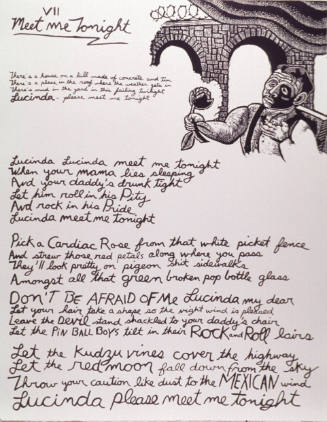 VII
Meet me Tonight
There is a house on a hill made of concrete and tin
There is a place in the roof where the weather gets in
There's mud in the yard in this failing twilight
Lucinda - please meet me tonight
Lucinda Lucinda meet me tonight
When your mama lies sleeping
And your daddy's drunk tight
Let him roll in his Pity
And rock in his Pride
Lucinda meet me tonight
Pick a Cardiac Rose from that white picket fence
And strew those red petals along where you pass
They'll look pretty on pigeon shit sidewalks
Amongst all that green broken pop bottle glass
DON'T BE AFRAID OF Me Lucinda my dear
Let your hair take a shape so the night wind is pleased
Leave the DEVIL stand shackled to your daddy's chair
Let the PIN BALL BOYS tilt in their ROCK and Roll lairs
Let the Kudzu vines cover the highway
Let the red moon fall down from the sky
Throw your caution like dust to the MEXICAN wind
Lucinda please meet me tonight